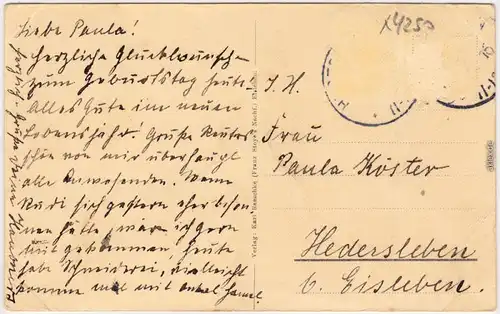 Liebe Paula!
Herzliche Glückwünsche
zum Geburtstag heute!
Alles Gute im neuen
Lebensjahr! Grüße
schön von mir überhaupt
alle Anwesenden. Wenn
Rudi sich gestern eher beson-
nen hätte, wäre ich gern
mit gekommen. Heute
habe Schneiderei, vielleicht
komme mal mit onkel
Herzlich. Grüße Deine
Verlag: Karl
x4250
S. H.
Frau
Paula Köster
Hedersleben
b. Eisleben.